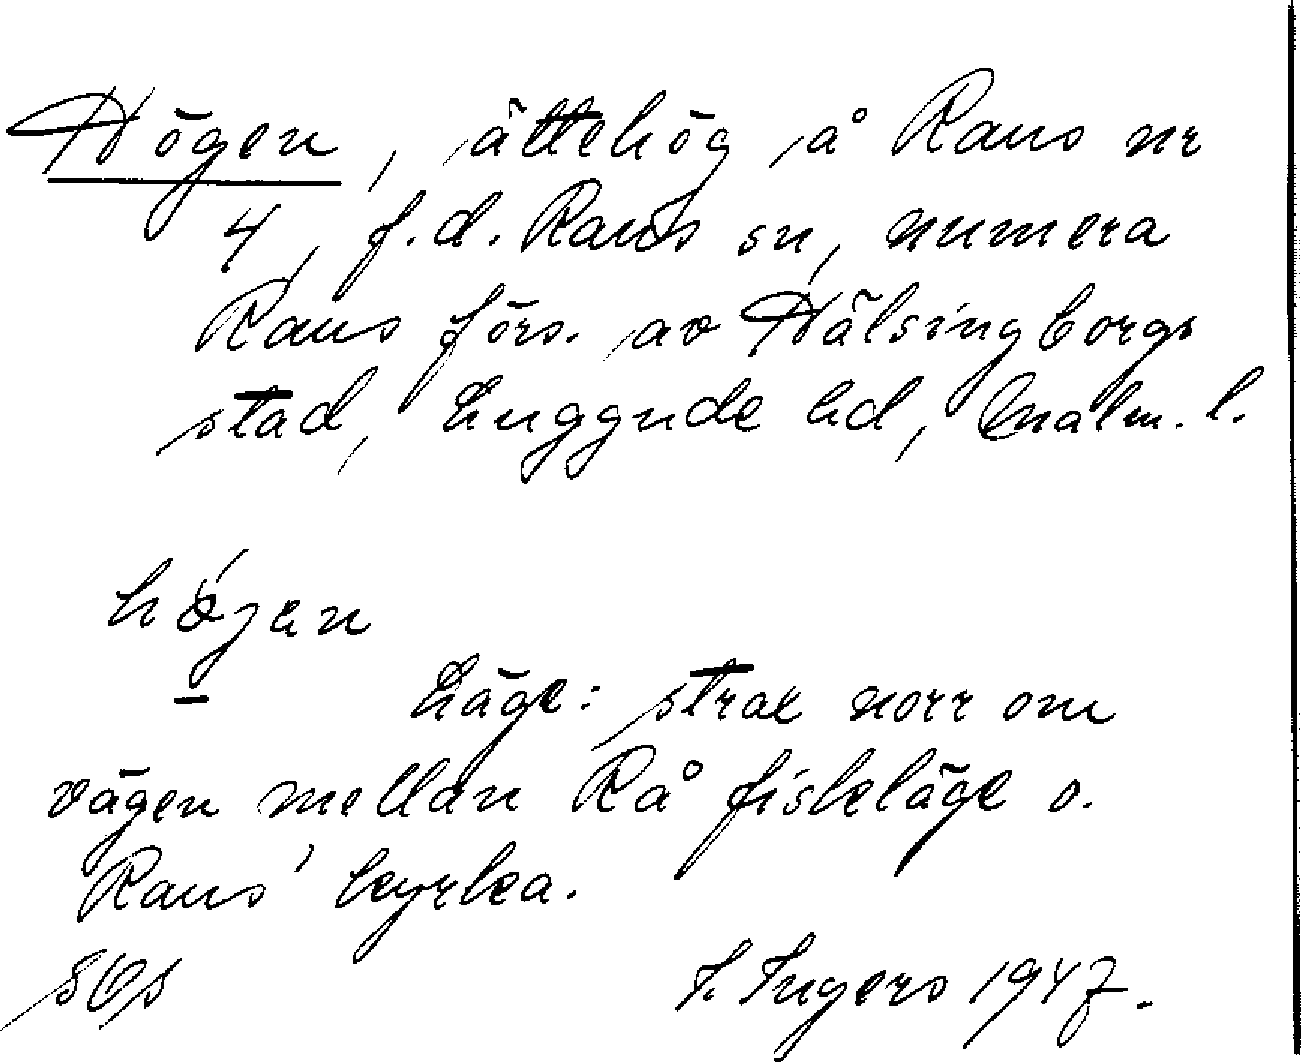 Högen, ättehög å Raus nr
4, f.d. Raus sn, numera
Raus förs. av Hälsingborgs
stad, Luggude hd, Malm. l.
högen
Läge: strax norr om
vägen mellan Rå fiskeläge o.
Raus' kyrka.
I. Ingers 1947.